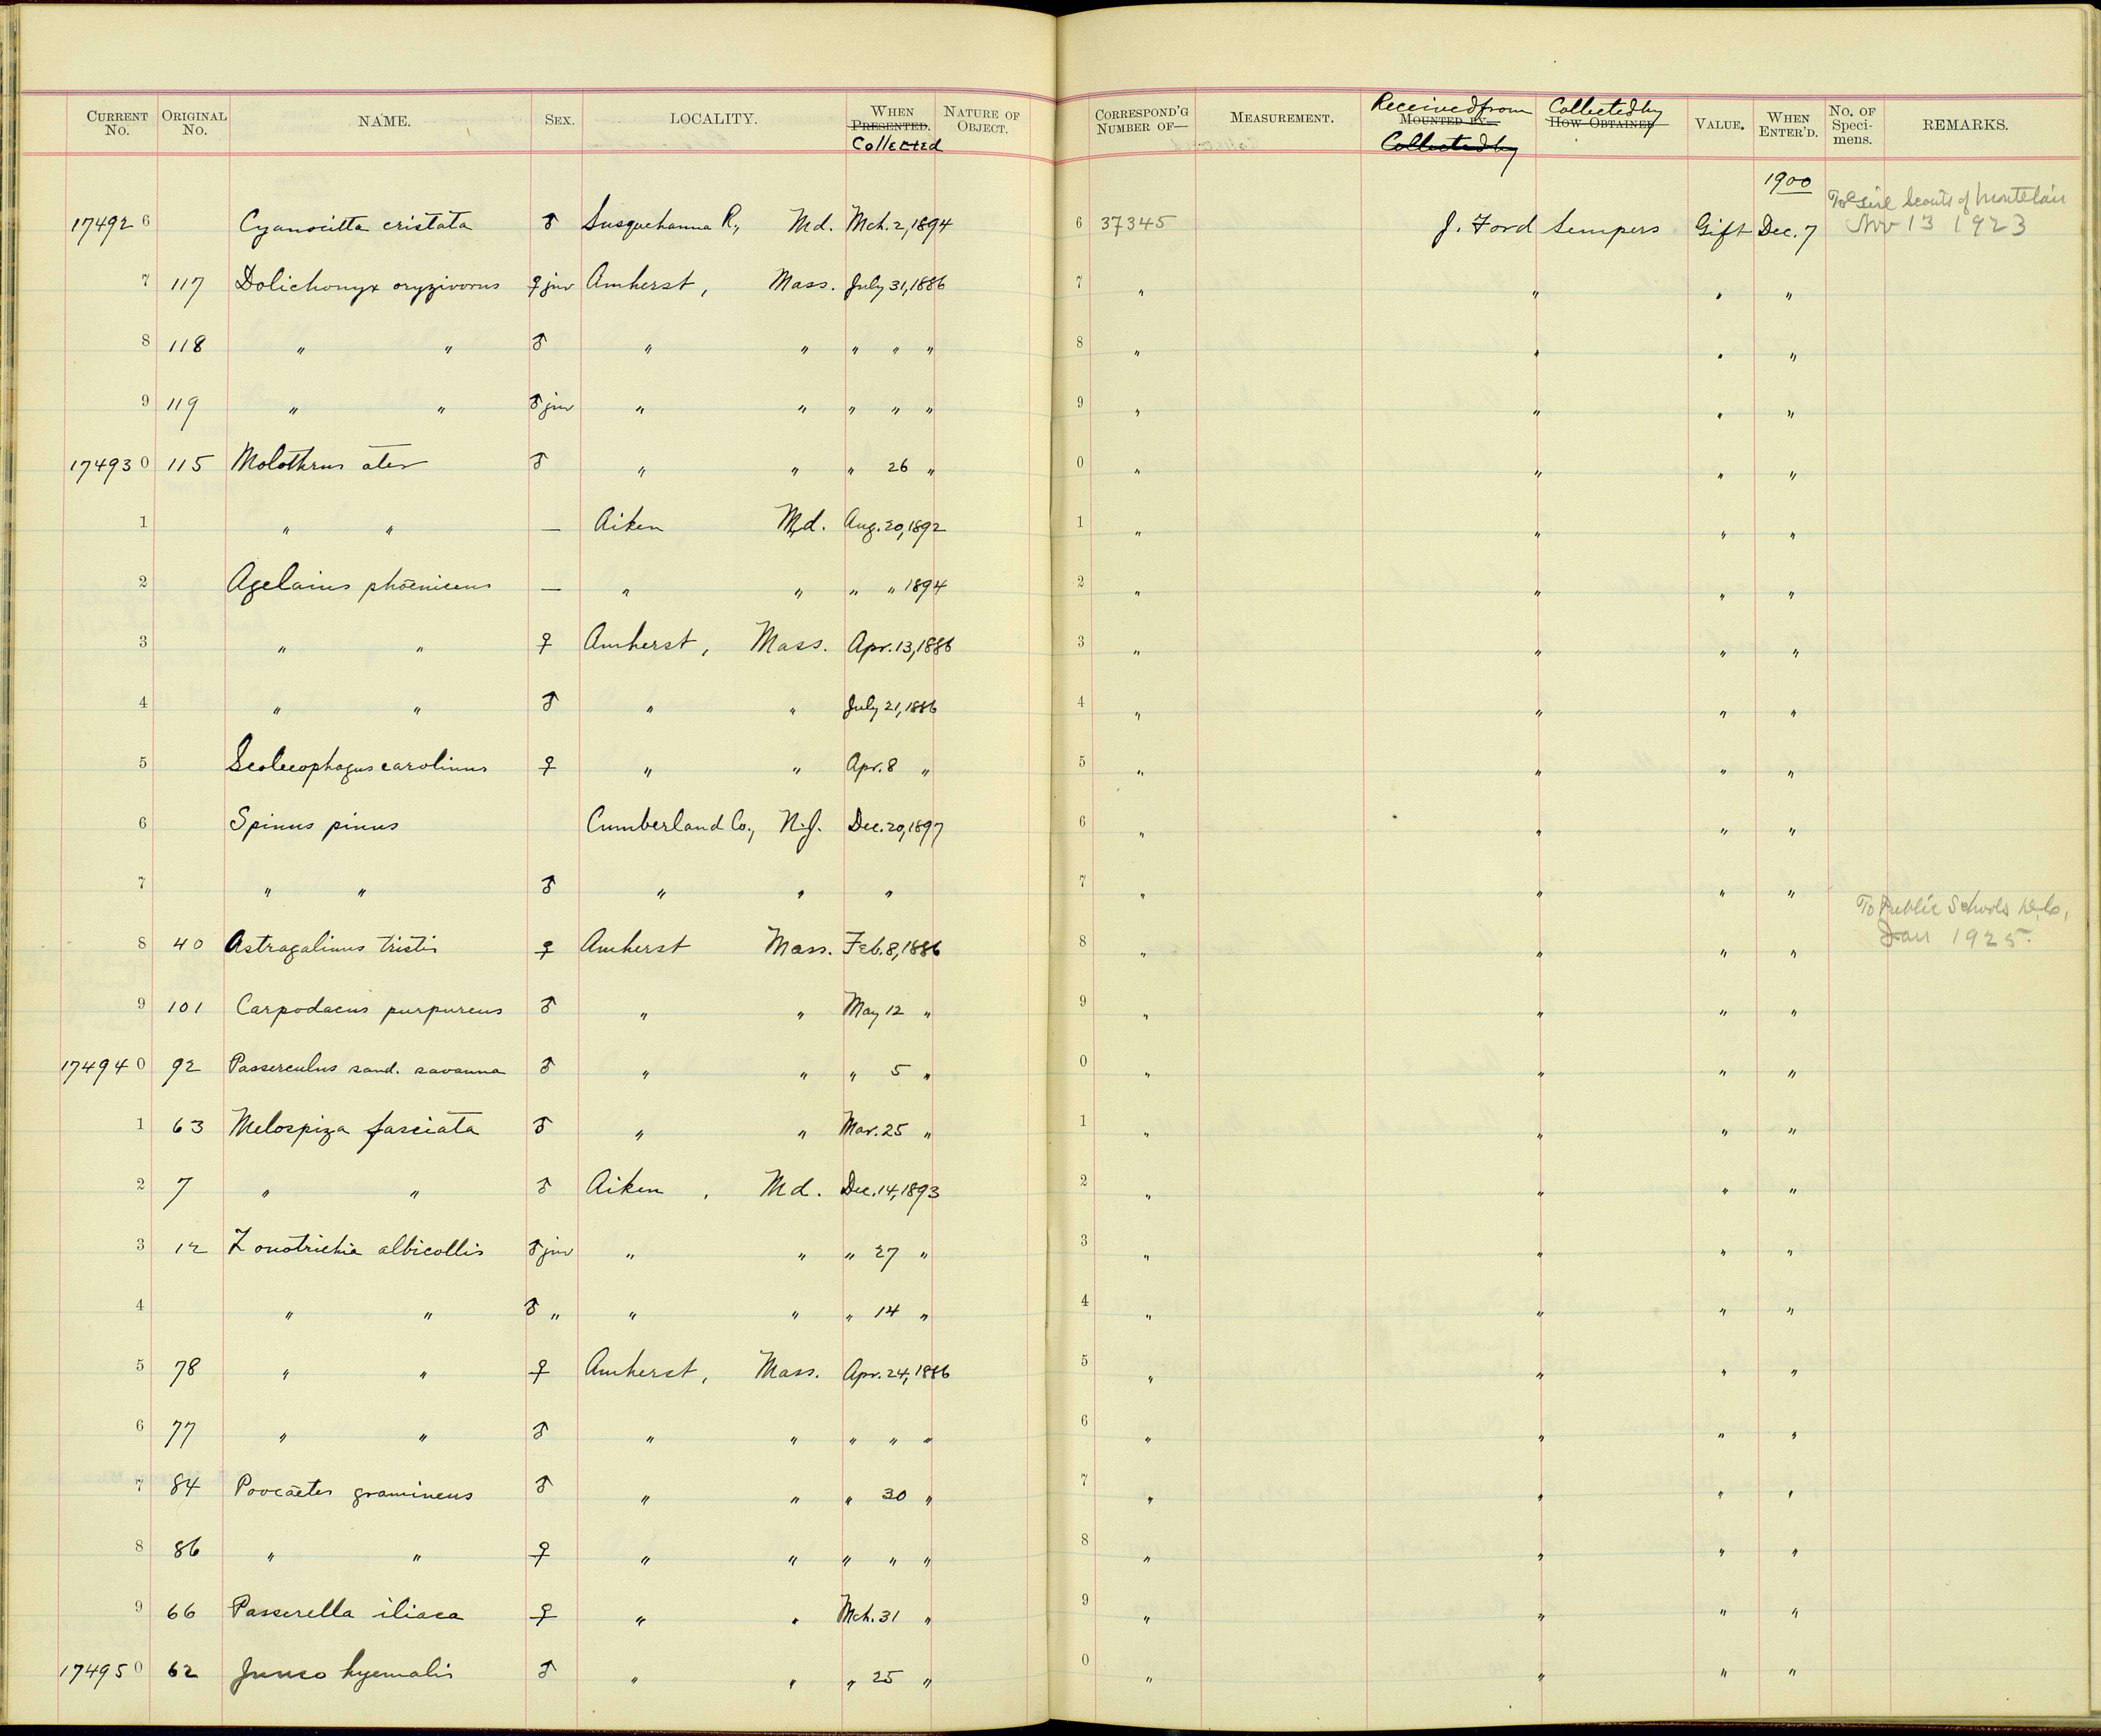 CURRENT No. ORIGINAL No. NAME. SEX. LOCALITY. WHEN PRESENTED. Collected NATURE OF OBJECT. CORRESPOND'G NUMBER OF— MEASUREMENT. Received from MOUNTED BY— Collected by Collected by HOW OBTAINED VALUE. WHEN ENTER'D. No. OF Specimens. REMARKS.
1900
To Girl Scouts of
17492 6 Cyanocitta cristata ♂ Susquehanna R., Md. Mch. 2, 1894 6 37345 J. Ford Sempers Gift Dec. 7 Nov 13 1923
7 117 Dolichonyx oryzivorus ♀ juv Amherst, Mass. July 31, 1886 7 " " " "
8 118 " " ♂ " " " " " 8 " " " "
9 119 " " ♂ juv " " " " " 9 " " " "
17493 0 115 Molothrus ater ♂ " " " 26 " 0 " " " "
1 " " — Aiken Md. Aug. 20, 1892 1 " " " "
2 Agelaius phoeniceus — " " " " 1894 2 " " " "
3 " " ♀ Amherst, Mass. Apr. 13, 1886 3 " " " "
4 " " ♂ " " July 21, 1886 4 " " " "
5 Scolecophagus carolinus ♀ " " Apr. 8 " 5 " " " "
6 Spinus pinus Cumberland Co., N.J. Dec. 20, 1897 6 " " " "
7 " " ♂ " " " 7 " " " "
To Public Schools
8 40 Astragalinus tristis ♀ Amherst Mass. Feb. 8, 1886 8 " " " " Jan 1925.
9 101 Carpodacus purpureus ♂ " " May 12 " 9 " " " "
17494 0 92 Passerculus sand. savanna ♂ " " " 5 " 0 " " " "
1 63 Melospiza fasciata ♂ " " Mar. 25 " 1 " " " "
2 7 " " ♂ Aiken, Md. Dec. 14, 1893 2 " " " "
3 12 Zonotrichia albicollis ♂ juv " " " 27 " 3 " " " "
4 " " ♂ " " " " 14 " 4 " " " "
5 78 " " ♀ Amherst, Mass. Apr. 24, 1886 5 " " " "
6 77 " " ♂ " " " " " 6 " " " "
7 84 Poocaetes gramineus ♂ " " " 30 " 7 " " " "
8 86 " " ♀ " " " " " 8 " " " "
9 66 Passerella iliaca ♀ " " Mch. 31 " 9 " " " "
17495 0 62 Junco hyemalis ♂ " " " 25 " 0 " " " "